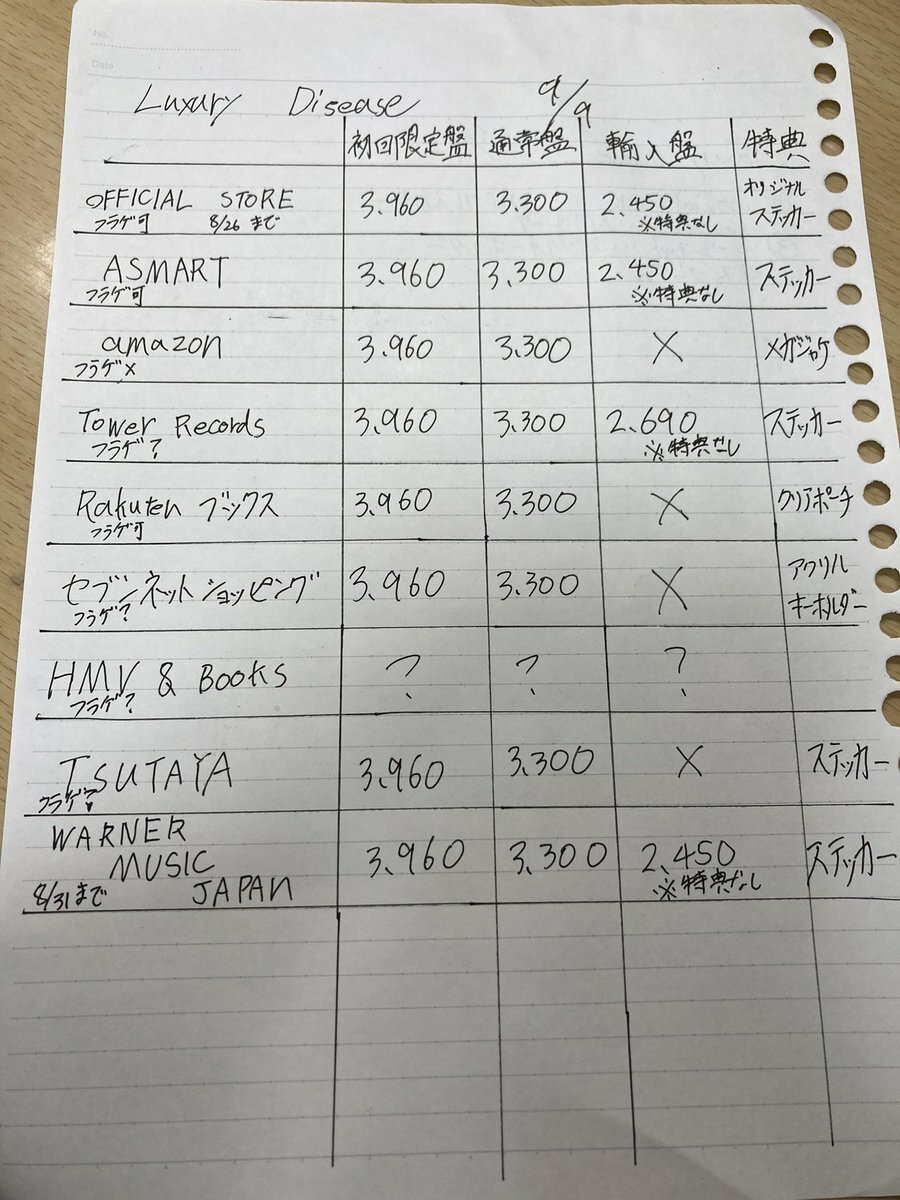 No.
Date
Luxury Disease 9/9
初回限定盤 通常盤 輸入盤 特典
OFFICIAL STORE 3.960 3.300 2.450 オリジナル
フラゲ可 8/26 まで ※特典なし ステッカー
ASMART 3.960 3.300 2.450 ステッカー
フラゲ可 ※特典なし
amazon 3.960 3.300 X メガジャケ
フラゲ×
Tower Records 3.960 3.300 2.690 ステッカー
フラゲ? ※特典なし
Rakuten ブックス 3.960 3.300 X クリアポーチ
フラゲ可
セブンネットショッピング 3.960 3.300 X アクリル
フラゲ? キーホルダー
HMV & Books ? ? ?
フラゲ?
TSUTAYA 3.960 3.300 X ステッカー
フラゲ?
WARNER
MUSIC 3.960 3.300 2.450 ステッカー
8/31まで JAPAN ※特典なし